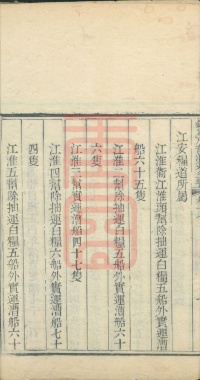 江安糧道所屬
江淮衛江淮頭幫除抽運白糧五船外實運漕
船六十五隻
江淮二幫除抽運白糧五船外實運漕船六十
六隻
江淮三幫實運漕船四十七隻
江淮四幫除抽運白糧六船外實運漕船六十
四隻
江淮五幫除抽運白糧五船外實運漕船六十七